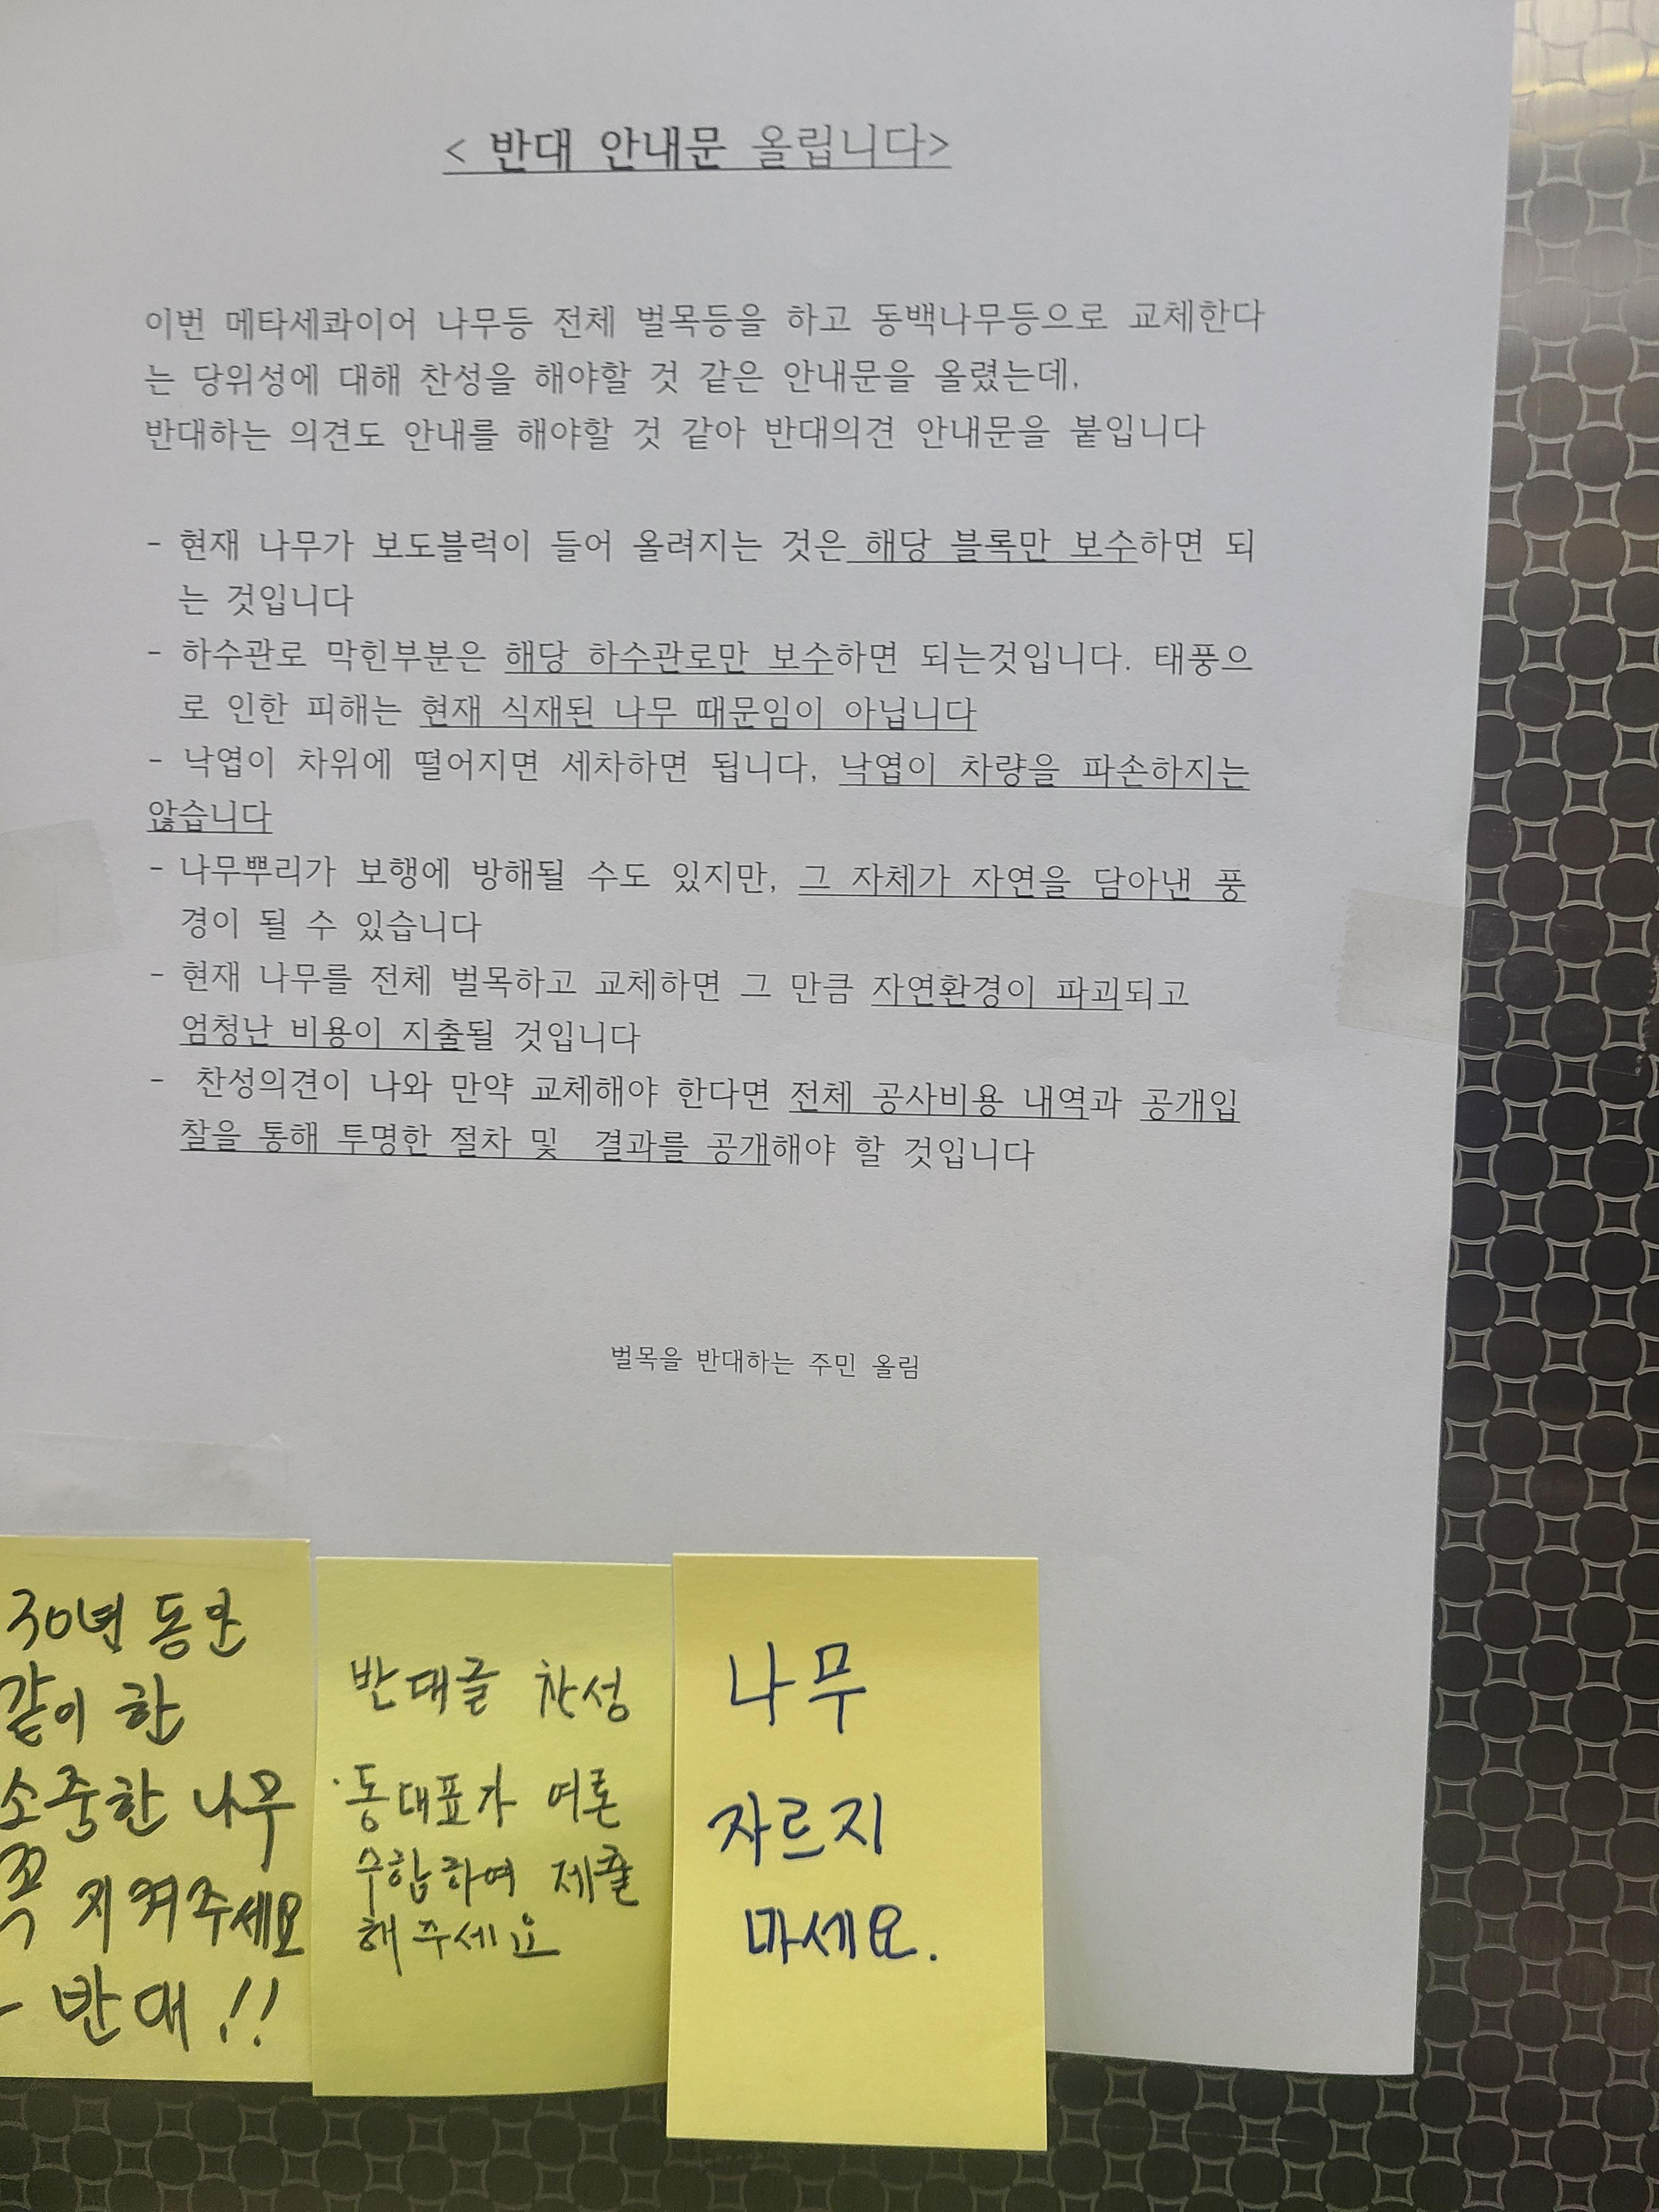 < 반대 안내문 올립니다>
이번 메타세콰이어 나무등 전체 벌목등을 하고 동백나무등으로 교체한다
는 당위성에 대해 찬성을 해야할 것 같은 안내문을 올렸는데,
반대하는 의견도 안내를 해야할 것 같아 반대의견 안내문을 붙입니다
- 현재 나무가 보도블럭이 들어 올려지는 것은 해당 블록만 보수하면 되
는 것입니다
- 하수관로 막힌부분은 해당 하수관로만 보수하면 되는것입니다. 태풍으
로 인한 피해는 현재 식재된 나무 때문임이 아닙니다
- 낙엽이 차위에 떨어지면 세차하면 됩니다, 낙엽이 차량을 파손하지는
않습니다
- 나무뿌리가 보행에 방해될 수도 있지만, 그 자체가 자연을 담아낸 풍
경이 될 수 있습니다
- 현재 나무를 전체 벌목하고 교체하면 그 만큼 자연환경이 파괴되고
엄청난 비용이 지출될 것입니다
- 찬성의견이 나와 만약 교체해야 한다면 전체 공사비용 내역과 공개입
찰을 통해 투명한 절차 및 결과를 공개해야 할 것입니다
벌목을 반대하는 주민 올림
30년 동안
같이 한
소중한 나무
꼭 지켜주세요
- 반대 !!
반대글 찬성
·동대표가 여론
수합하여 제출
해주세요
나무
자르지
마세요.